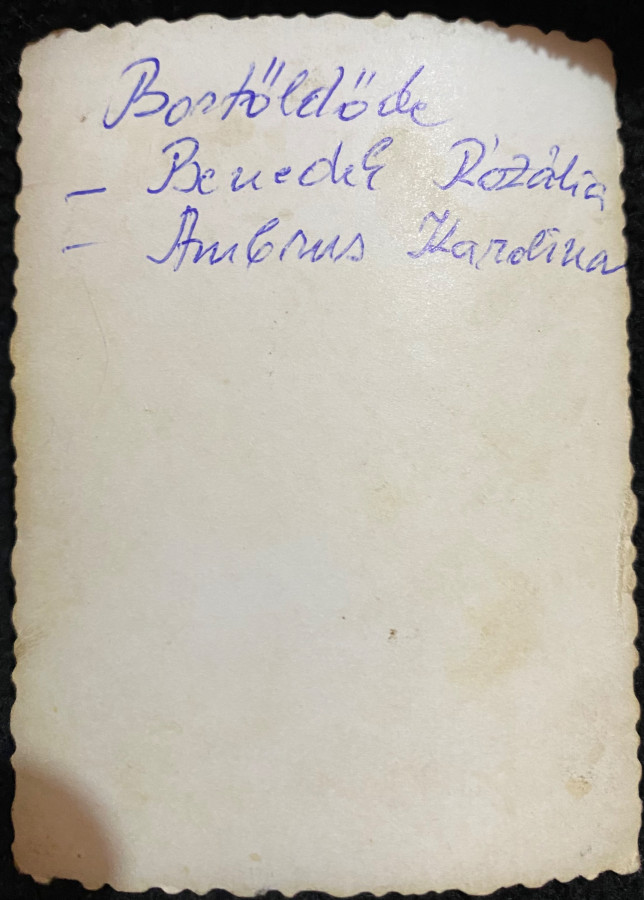 Bortőldőde
- Benedek Rózália
- Ambrus Karolina